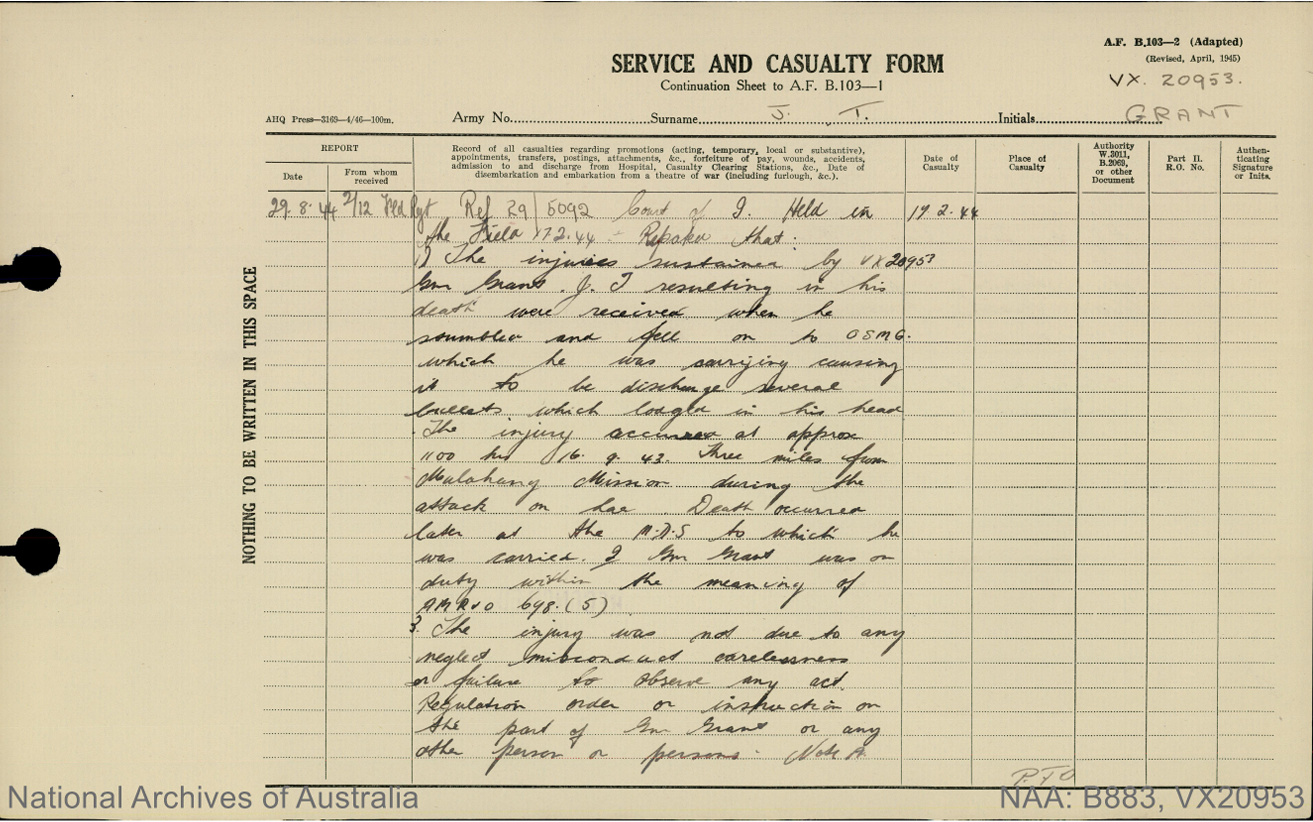 A.F. B.103—2 (Adapted)
(Revised, April, 1945)
SERVICE AND CASUALTY FORM
Continuation Sheet to A.F. B.103—1
VX. 20953.
AHQ Press—3169—4/46—100m.
Army No. Surname J. T. Initials GRANT
REPORT
Date
From whom received
Record of all casualties regarding promotions (acting, temporary, local or substantive),
appointments, transfers, postings, attachments, &c., forfeiture of pay, wounds, accidents,
admission to and discharge from Hospital, Casualty Clearing Stations, &c., Date of
disembarkation and embarkation from a theatre of war (including furlough, &c.).
Date of Casualty
Place of Casualty
Authority W.3011, B.2069, or other Document
Part II. R.O. No.
Authenticating Signature or Inits.
NOTHING TO BE WRITTEN IN THIS SPACE
29.8.44 2/12 Fld Rgt Ref 29/5092 Court of I. Held in 19 2.44
the Field 17 2.44 - that:
1) The injuries sustained by VX 20953
Gnr Grant. J. T resulting in his
death were received when he
stumbled and fell on to OSMG.
which he was carrying causing
it to be discharge several
bullets which lodged in his head
The injury occurred at approx
1100 hrs 16. 9. 43. Three miles from
Malahang Mission during the
attack on Lae. Death occurred
later at the M.D.S to which he
was carried. 2 Gnr Grant was on
duty within the meaning of
AMR&O 698.(5)
3. The injury was not due to any
neglect misconduct carelessness
or failure to observe any act.
Regulation order or instruction on
the part of Gnr Grant or any
other person or persons. Note A
P.T.O
National Archives of Australia
NAA: B883, VX20953